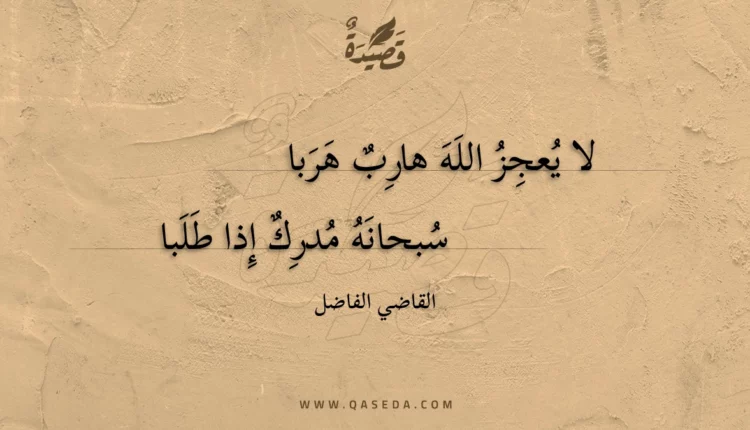 قَصِيدَةٌ
لا يُعجِزُ اللَهَ هارِبٌ هَرَبا
سُبحانَهُ مُدرِكٌ إِذا طَلَبا
القاضي الفاضل
WWW.QASEDA.COM